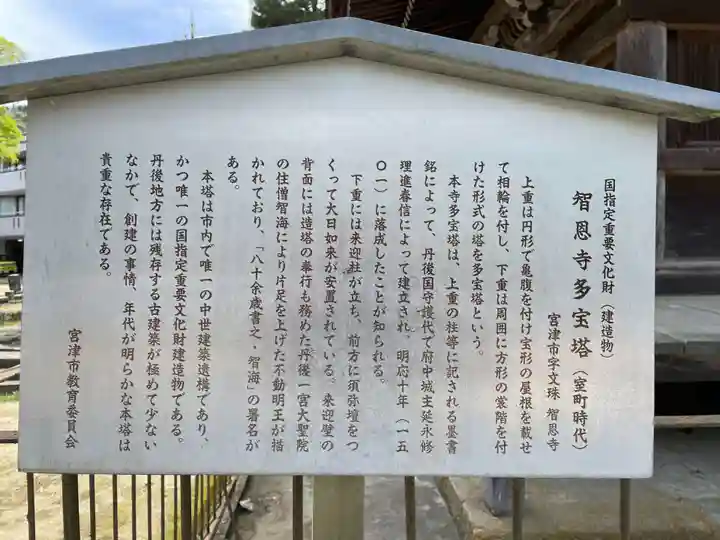 国指定重要文化財（建造物）
智恩寺多宝塔（室町時代）
宮津市字文珠　智恩寺
上重は円形で亀腹を付け宝形の屋根を載せ
て相輪を付し、下重は周囲に方形の裳階を付
けた形式の塔を多宝塔という。
本寺多宝塔は、上重の柱等に記される墨書
銘によって、丹後国守護代で府中城主延永修
理進春信によって建立され、明応十年（一五
〇一）に落成したことが知られる。
下重には来迎柱が立ち、前方に須弥壇をつ
くって大日如来が安置されている。来迎壁の
背面には造塔の奉行も務めた丹後一宮大聖院
の住僧智海により片足を上げた不動明王が描
かれており、「八十余歳書之・智海」の署名が
ある。
本塔は市内で唯一の中世建築遺構であり、
かつ唯一の国指定重要文化財建造物である。
丹後地方には残存する古建築が極めて少ない
なかで、創建の事情、年代が明らかな本塔は
貴重な存在である。
宮津市教育委員会